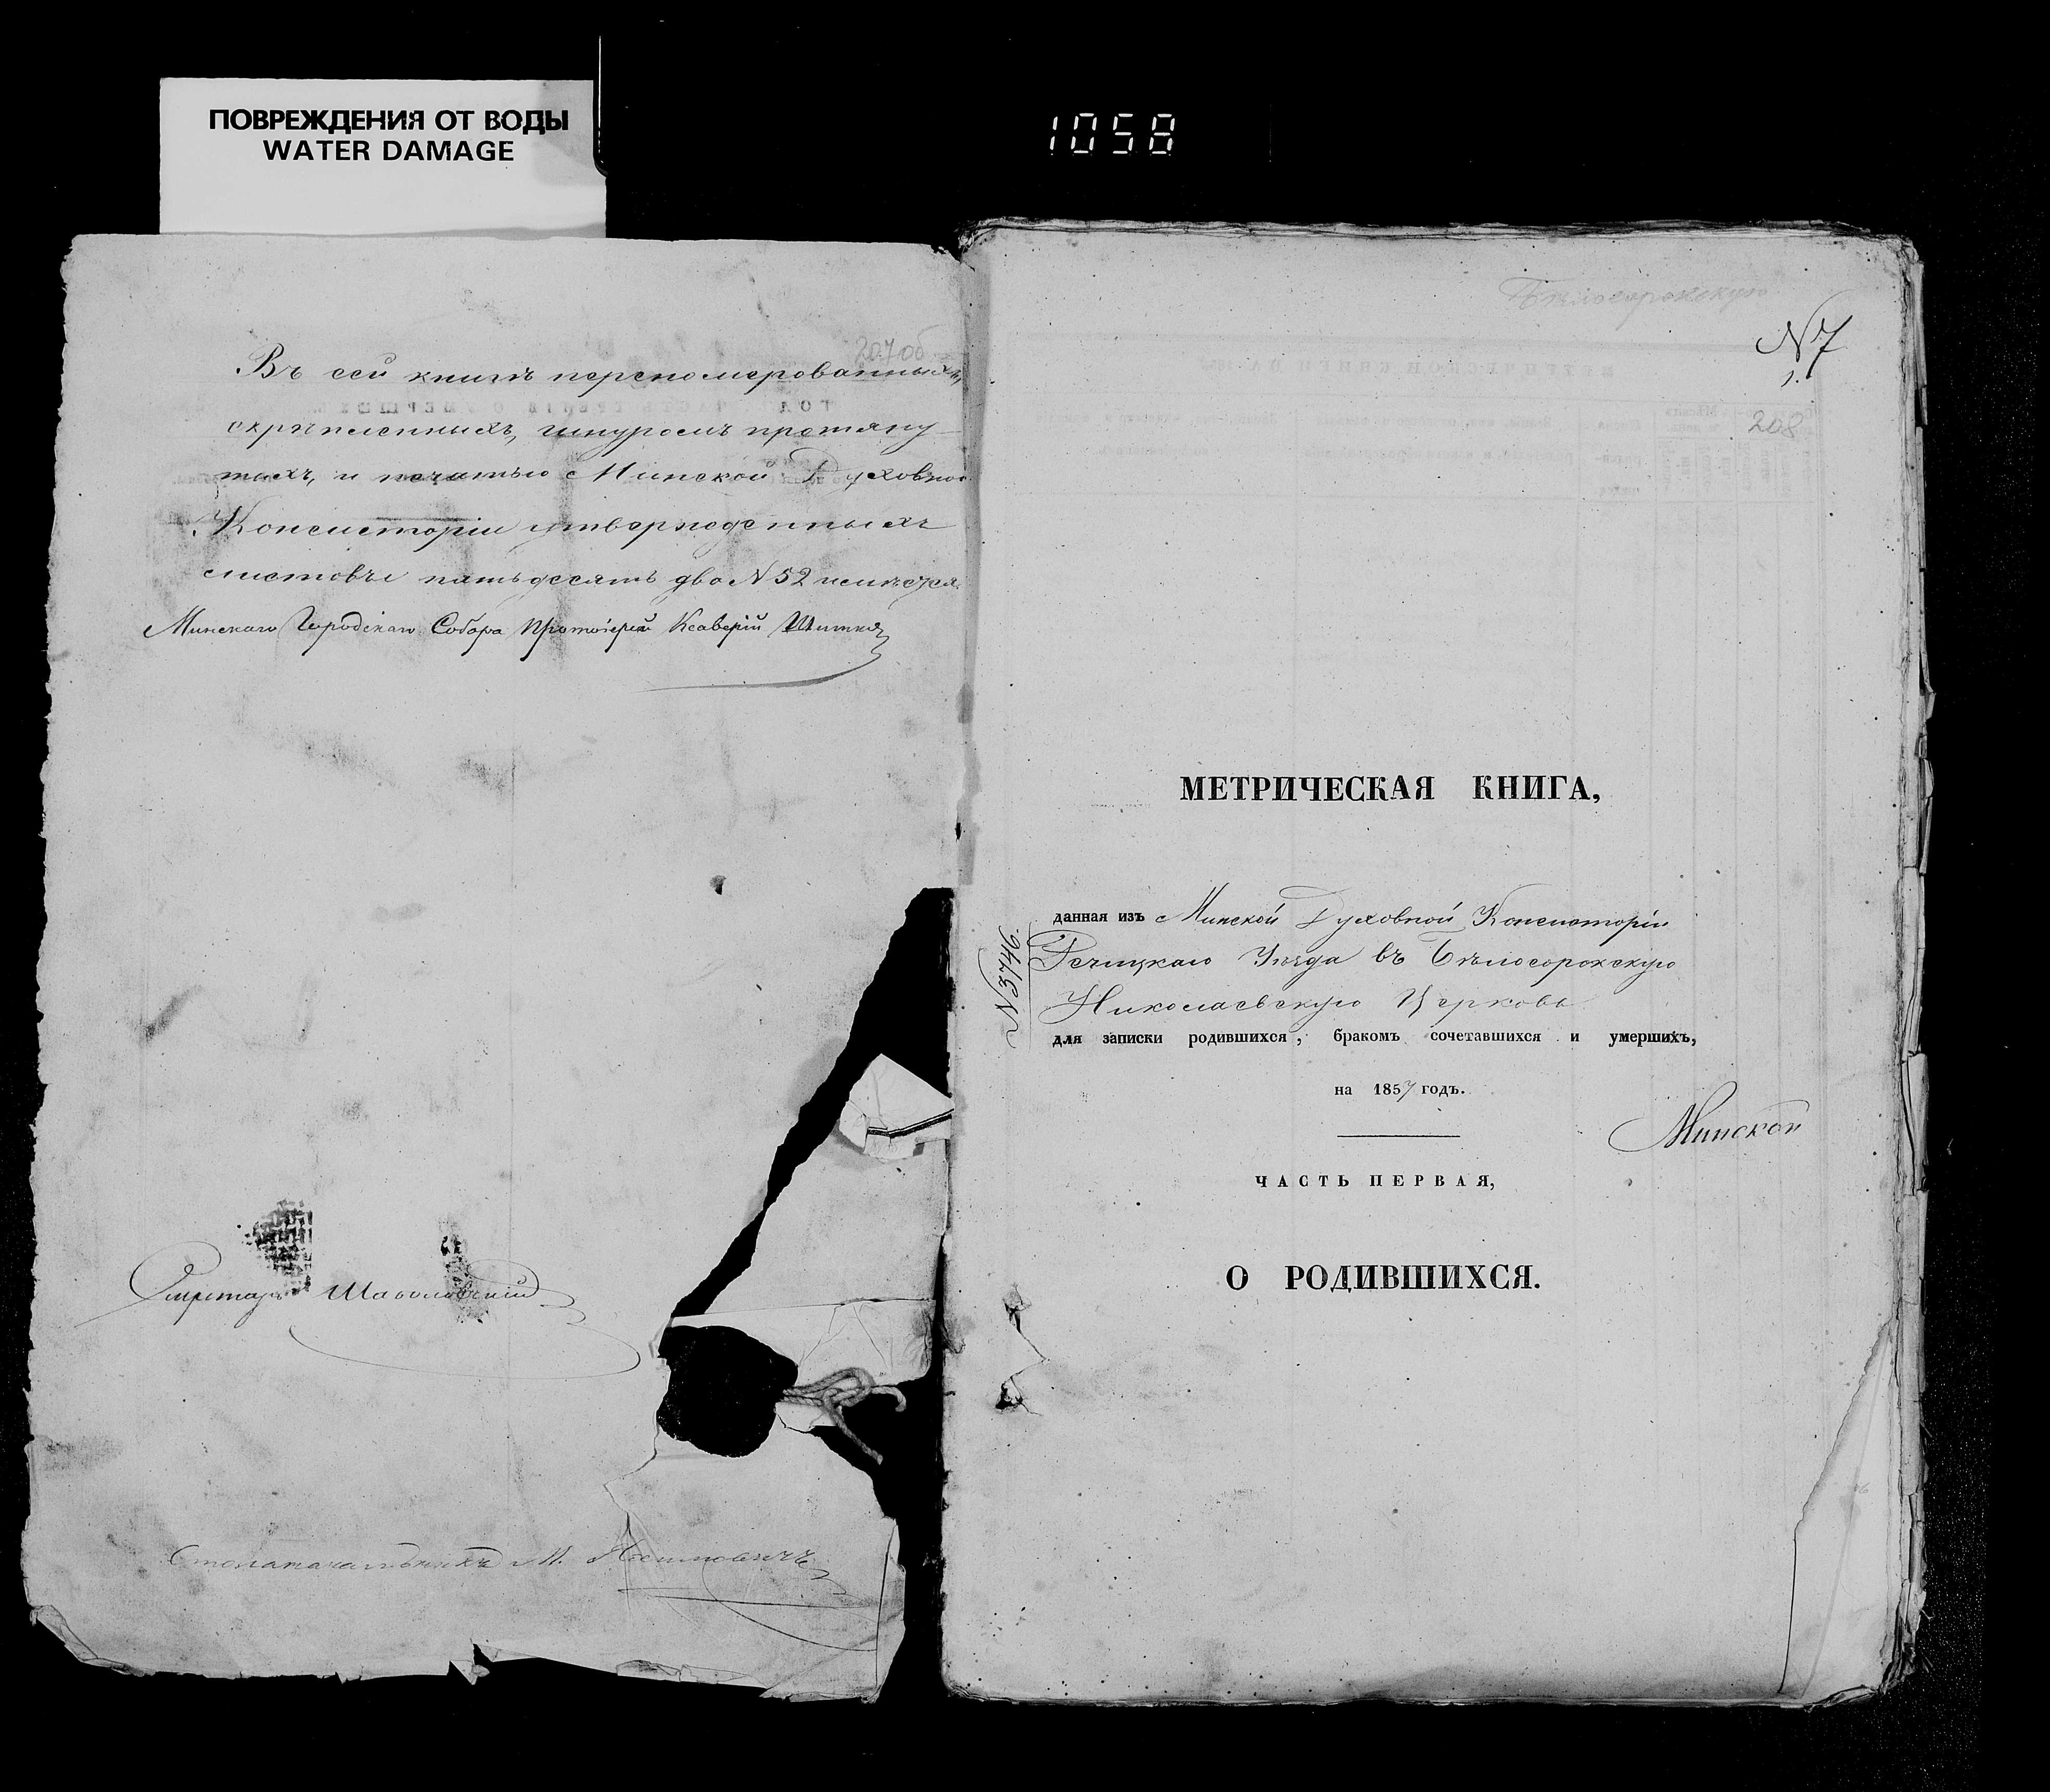 ПОВРЕЖДЕНИЯ ОТ ВОДЫ
WATER DAMAGE
1058
207 об
Въ сей книгѣ перономерованныхъ,
скрѣпленныхъ, шнуромъ протяну-
тыхъ, и печатью Минской Духовной
Консисторіи утвержденныхъ
листовъ пятьдесятъ два N 52 имѣется.
Минскаго Городскаго Собора Протоіерей Ксаверій
Секретарь
Столоначальникъ М.
Бѣлосорокскую
N 7
1.
208
МЕТРИЧЕСКАЯ КНИГА,
данная изъ Минской Духовной Консисторіи
Речицкаго Уѣзда въ Бѣлосорокскую
Николаевскую Церковь
для записки родившихся, бракомъ сочетавшихся и умершихъ,
на 1857 годъ.
N 3746.
Минской
ЧАСТЬ ПЕРВАЯ,
О РОДИВШИХСЯ.